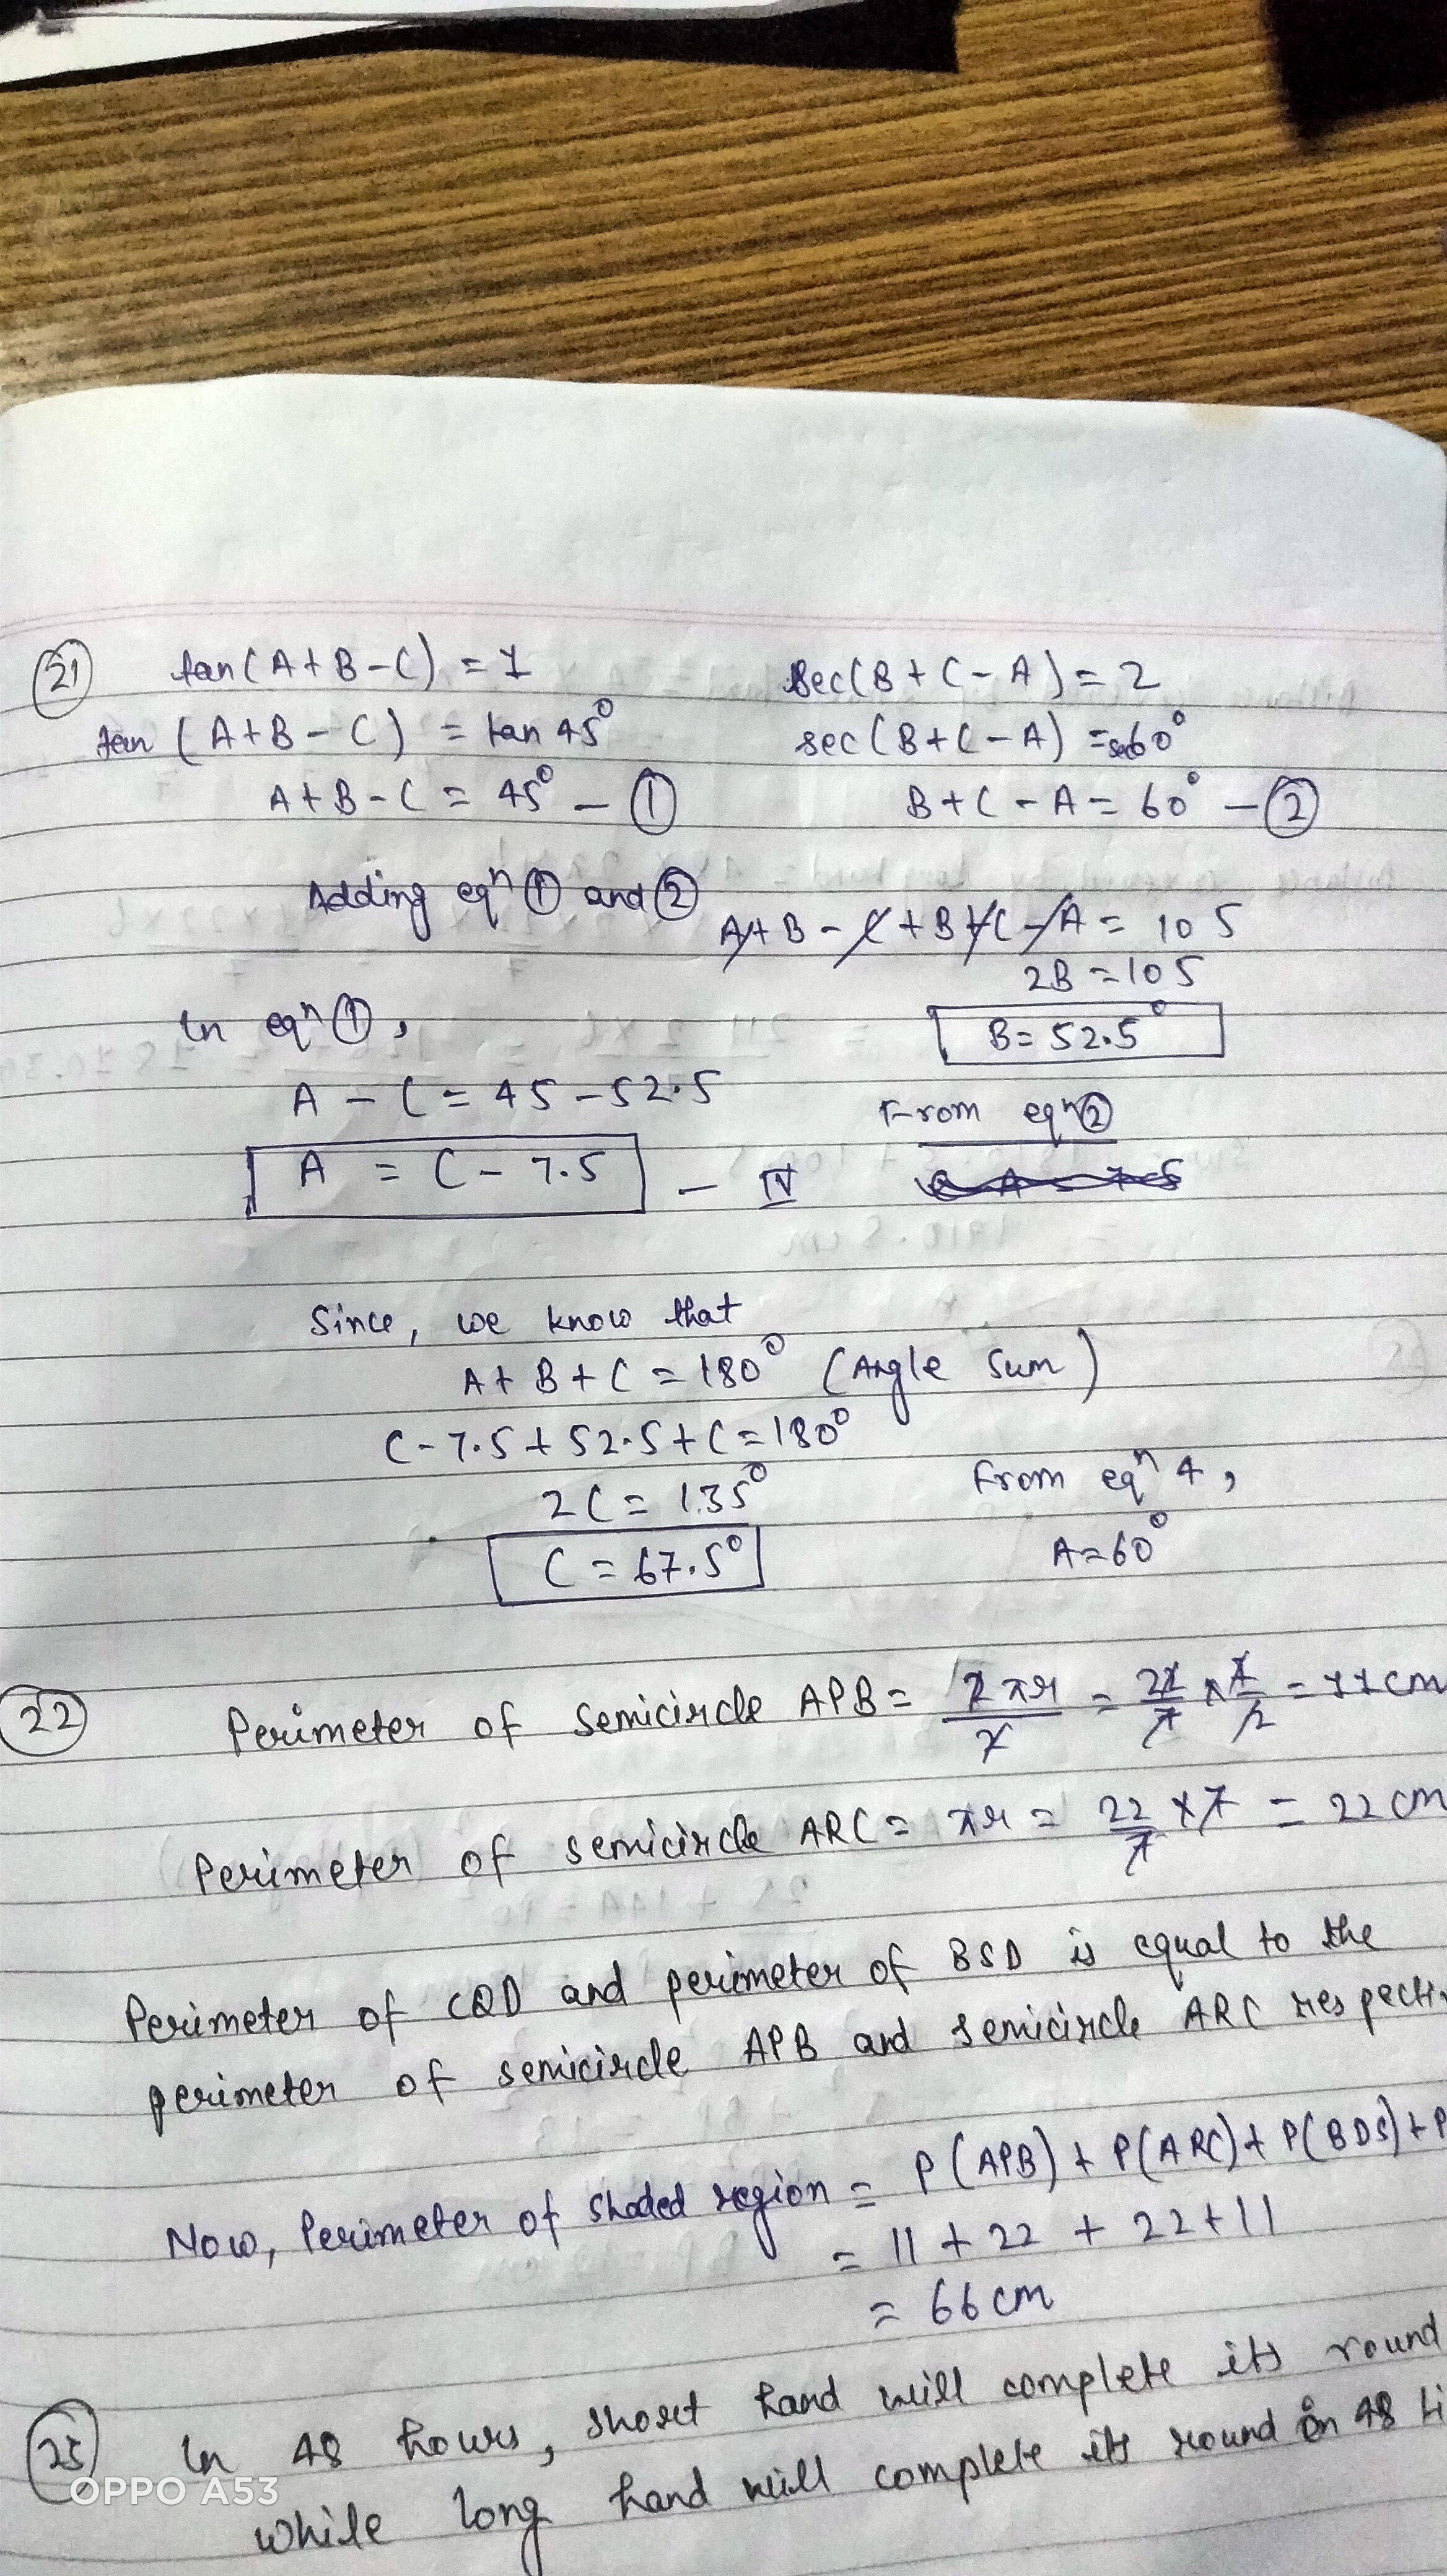 21 tan(A+B-C) = 1 sec(B+C-A) = 2
tan (A+B-C) = tan 45° sec(B+C-A) = sec60°
A+B-C = 45° - ① B+C-A = 60° - ②
Adding eqⁿ ① and ② A+B-C+B+C-A = 105
2B = 105
In eqⁿ ①, B = 52.5°
A - C = 45 - 52.5 From eqⁿ ②
A = C - 7.5 - IV
Since, we know that
A+B+C = 180° (Angle Sum)
C-7.5+52.5+C = 180°
2C = 135° From eqⁿ 4,
C = 67.5° A=60°
22 Perimeter of semicircle APB = 2πr/2 = 22/7 × 7/2 = 11 cm
Perimeter of semicircle ARC = πr = 22/7 × 7 = 22 cm
Perimeter of CQD and perimeter of BSD is equal to the
perimeter of semicircle APB and semicircle ARC respecti
Now, Perimeter of shaded region = P(APB) + P(ARC) + P(BDS) + P
= 11 + 22 + 22 + 11
= 66 cm
25 In 48 hours, short hand will complete its round
while long hand will complete its round in 48 ti
OPPO A53